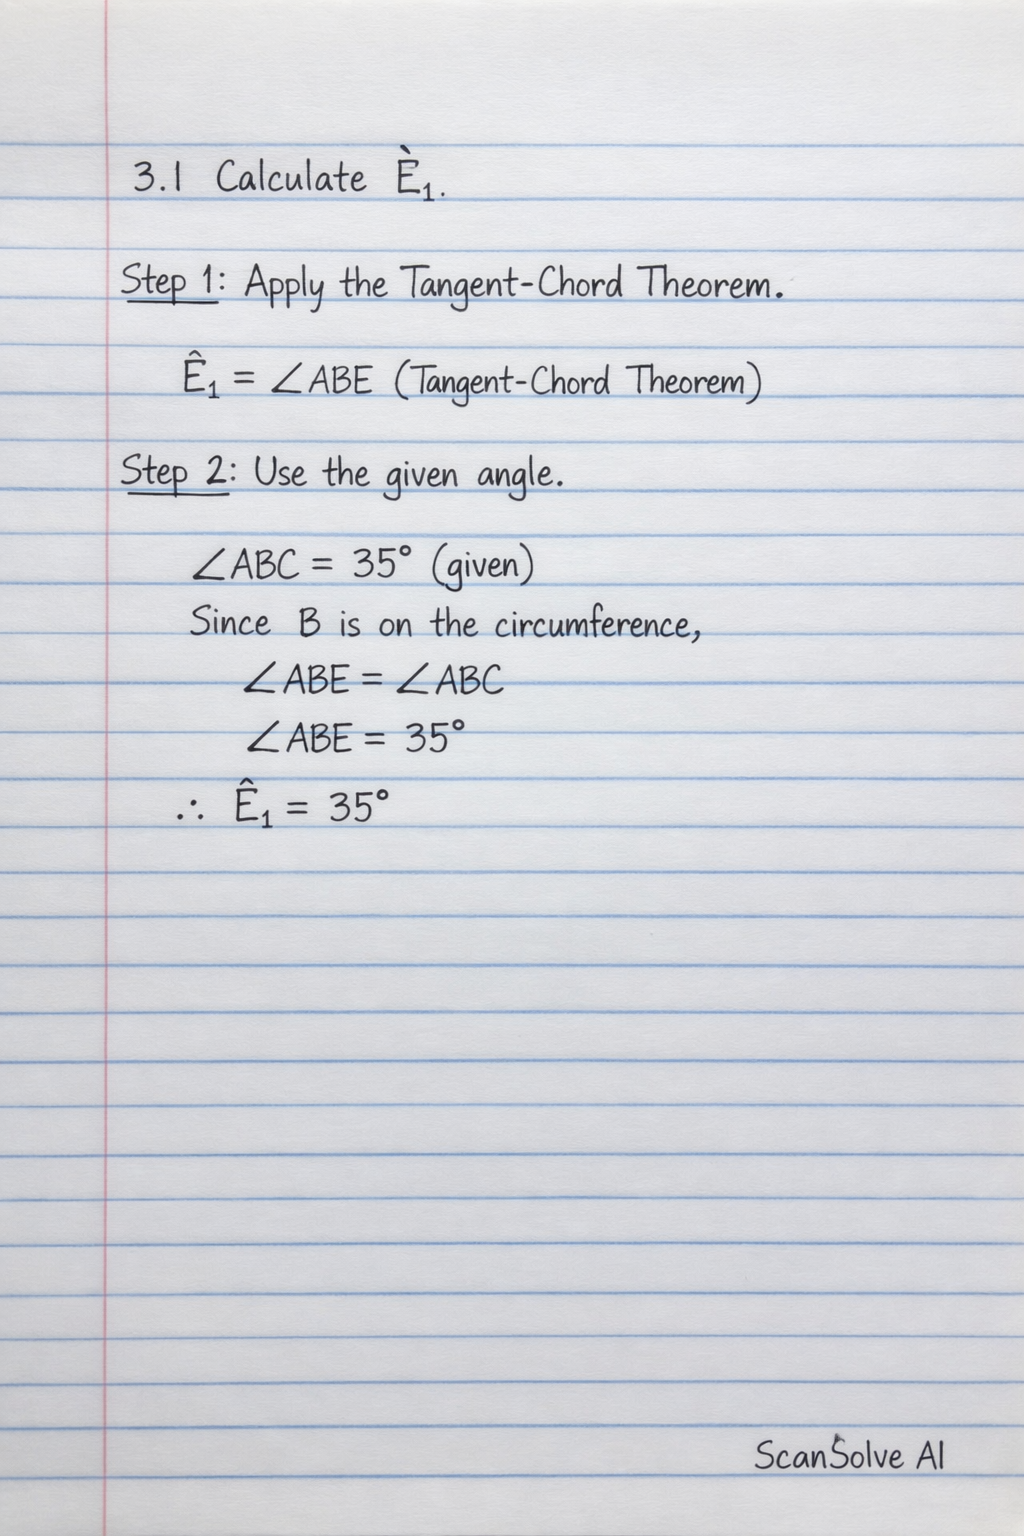 3.1 Calculate È₁.
Step 1: Apply the Tangent-Chord Theorem.
Ê₁ = ∠ABE (Tangent-Chord Theorem)
Step 2: Use the given angle.
∠ABC = 35° (given)
Since B is on the circumference,
∠ABE = ∠ABC
∠ABE = 35°
∴ Ê₁ = 35°
ScanSolve AI